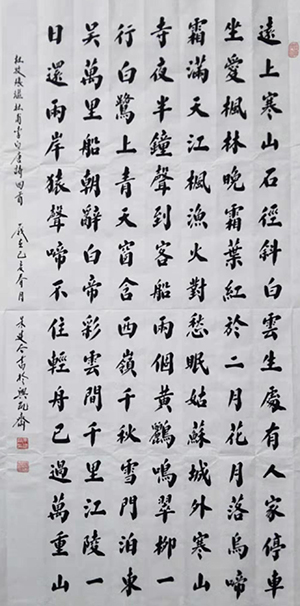 遠上寒山石徑斜白雲生處有人家停車
坐愛楓林晚霜葉紅於二月花月落烏啼
霜滿天江楓漁火對愁眠姑蘇城外寒山
寺夜半鐘聲到客船兩個黃鸝鳴翠柳一
行白鷺上青天窗含西嶺千秋雪門泊東
吴萬里船朝辭白帝彩雲間千里江陵一
日還兩岸猿聲啼不住輕舟已過萬重山
杜牧張繼杜甫李白唐詩四首 歲在己亥